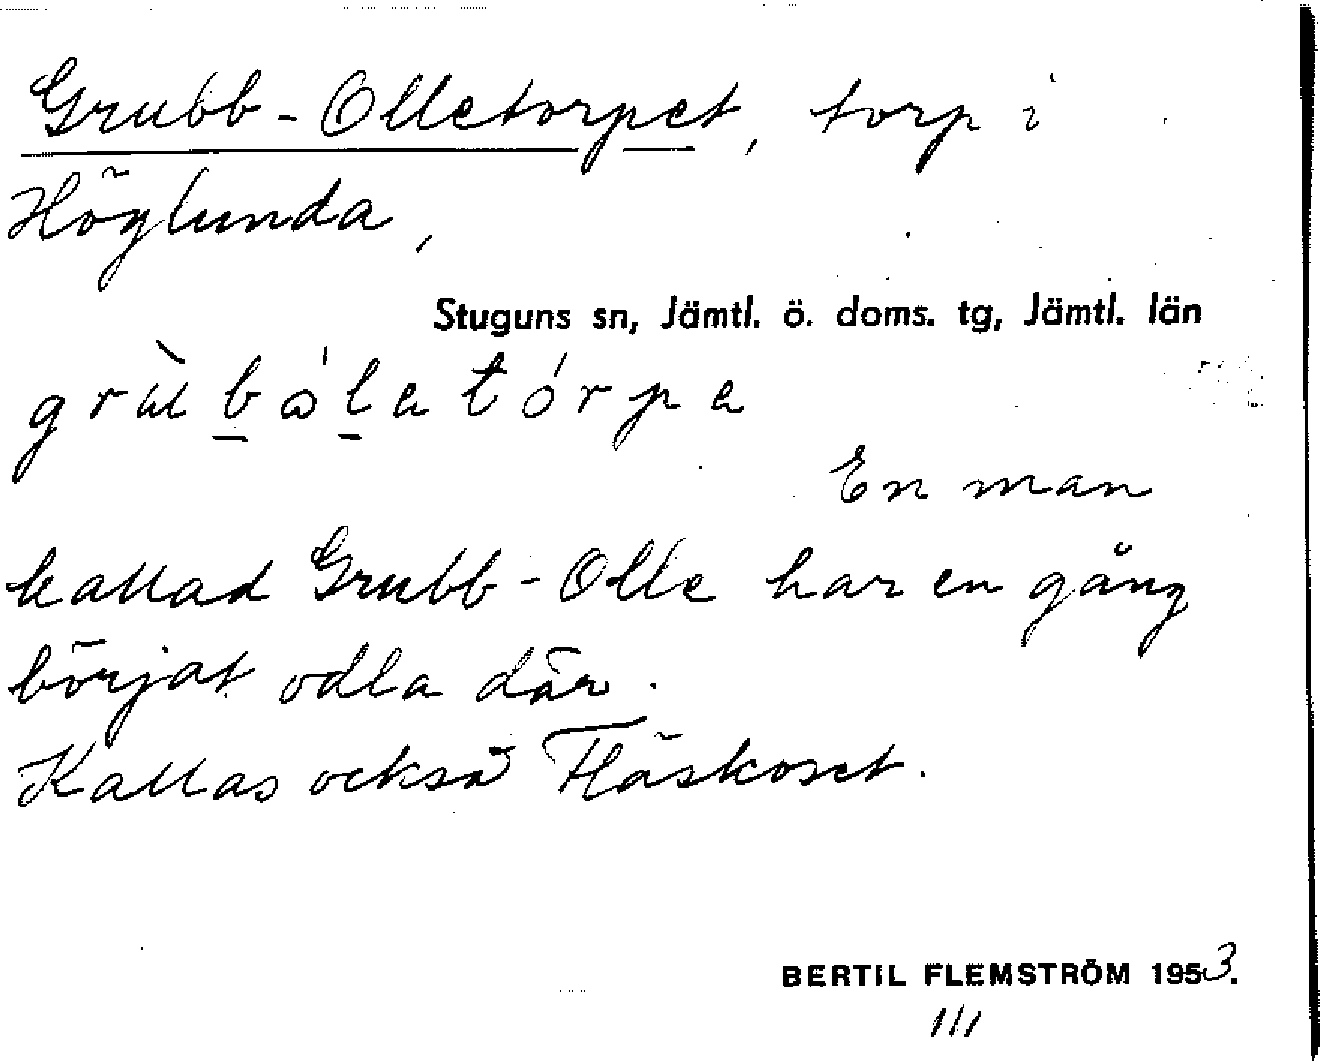 Grubb-Olletorpet, torp i
Höglunda,
Stuguns sn, Jämtl. ö. doms. tg, Jämtl. län
En man
kallad Grubb-Olle har en gång
börjat odla där.
Kallas också Fläskoset.
BERTIL FLEMSTRÖM 1953.